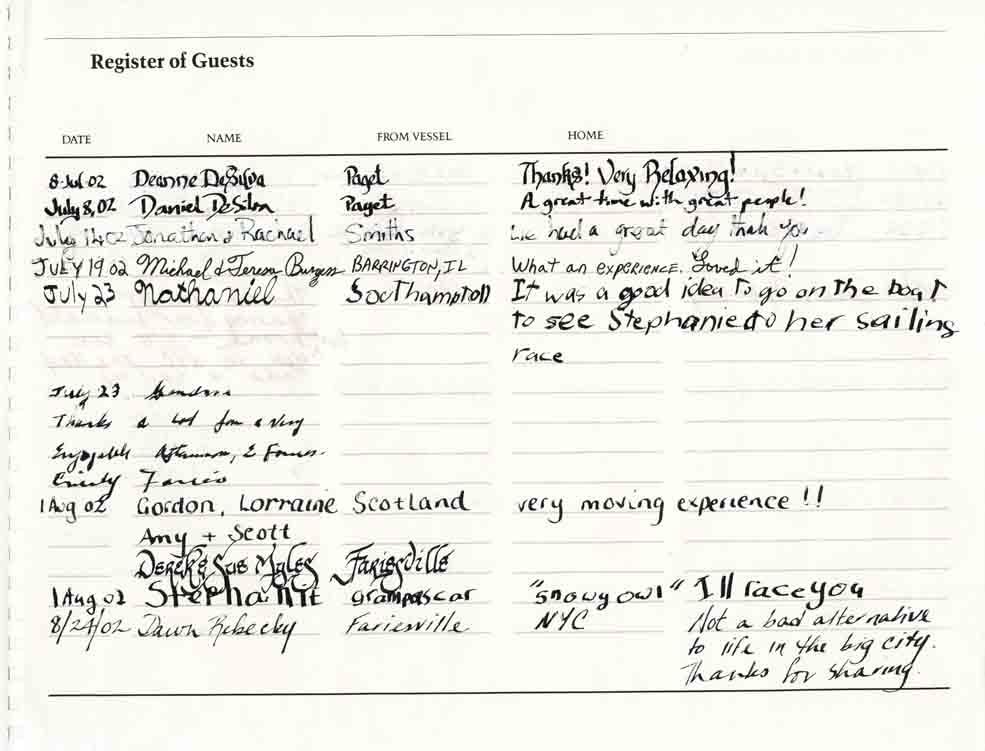 Register of Guests
DATE NAME FROM VESSEL HOME
8 Jul 02 Deanne DeSilva Paget Thanks! Very Relaxing!
July 8, 02 Daniel DeSilva Paget A great time with great people!
July 14 02 Jonathan & Rachael Smiths We had a great day thank you
JULY 19 02 Michael & Teresa Burgess BARRINGTON, IL What an EXPERIENCE. Loved it!
July 23 Nathaniel Southampton It was a good idea to go on the boat
to see Stephanie do her sailing
race
July 23
Thanks a lot for a very
Enjoyable Afternoon,
1 Aug 02 Gordon, Lorraine Scotland very moving experience !!
Amy + Scott
Derek & Sue Myles Fariesville
1 Aug 02 Stephanie grampascar "snowy owl" I'll race you
8/24/02 Dawn Fariesville NYC Not a bad alternative
to life in the big city.
Thanks for sharing.